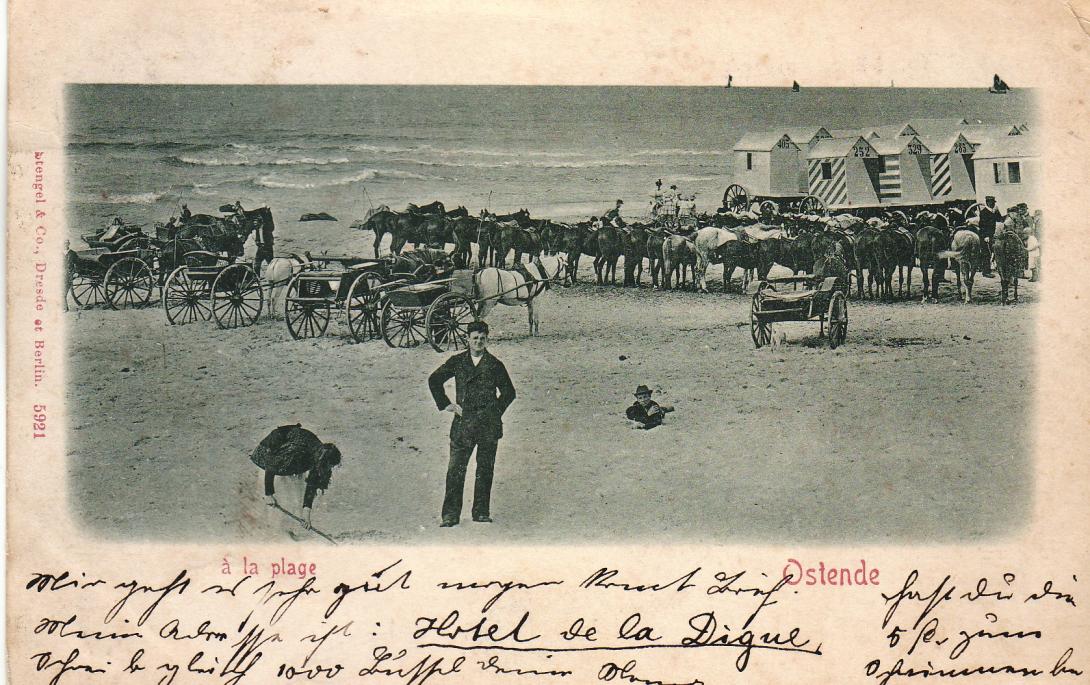 Stengel & Co., Dresde et Berlin. 5921
405
252
329
285
à la plage
Ostende
Mir geht es sehr gut morgen kommt Brief.
Meine Adresse ist: Hotel de la Digue,
Schreibe gleich 1000 Küssel deine
hast du die
5 fr. zum